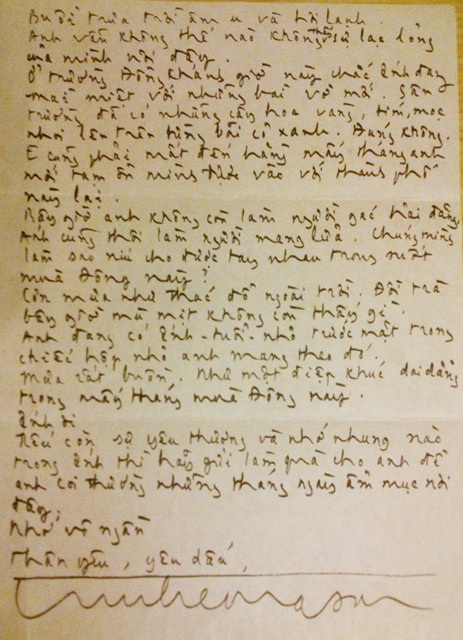 Buổi trưa trời âm u và hơi lạnh.
Anh vẫn không thể nào không thở sự lạc lõng
của mình nơi đây.
Ở trường Đồng Khánh giờ này chắc Ánh đang
mải miết với những bài vở mới. Sân
trường đã có những cây hoa vàng, tím, mọc
nhoi lên trên từng bãi cỏ xanh. Đúng không.
E cũng phải mất đến hàng mấy tháng anh
mới tạm ổn mình được vào với thành phố
này lại.
Bây giờ anh không còn làm người gác hải đăng.
Anh cũng thôi làm người mang lửa. Chúng mình
làm sao níu cho được tay nhau trong suốt
mùa Đông này?
Cơn mưa như thác đổ ngoài trời. Đồi trà
bây giờ mù mịt không còn thấy gì.
Anh đang có Ánh-tuổi-nhỏ trước mặt trong
chiếc hộp nhỏ anh mang theo đó.
Mưa rất buồn. Như một điệp khúc dai dẳng
trong mấy tháng mùa Đông này.
Ánh ơi
Nếu còn sự yêu thương và nhớ nhung nào
trong Ánh thì hãy gửi làm quà cho anh để
anh coi thường những tháng ngày ẩm mục nơi
đây.
Nhớ vô ngần
Thân yêu, yêu dấu,
trinhcongson